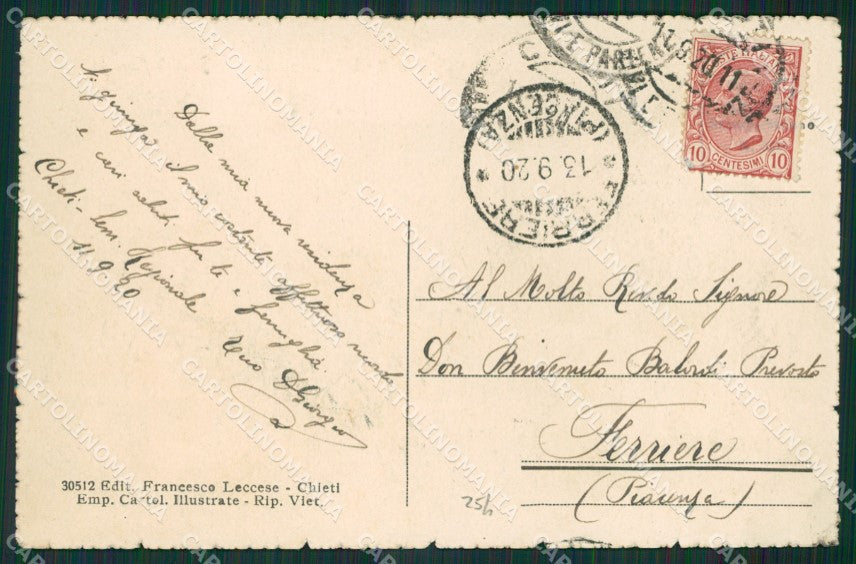 Dalla mia nuova residenza
ti giunga il mio costante affettuoso ricordo
e cari saluti per te e famiglia.
Chieti - Sem. Regionale
11.9.20
Tuo
30512 Edit. Francesco Leccese - Chieti
Emp. Cartol. Illustrate - Rip. Viet.
11.9.20 11
FERRIERE
(PIACENZA)
13.9.20
POSTE ITALIANE
10 CENTESIMI 10
Al Molto Revdo Signore
Don Benvenuto Balordi Prevosto
Ferriere
(Piacenza)
25h
CARTOLINOMANIA